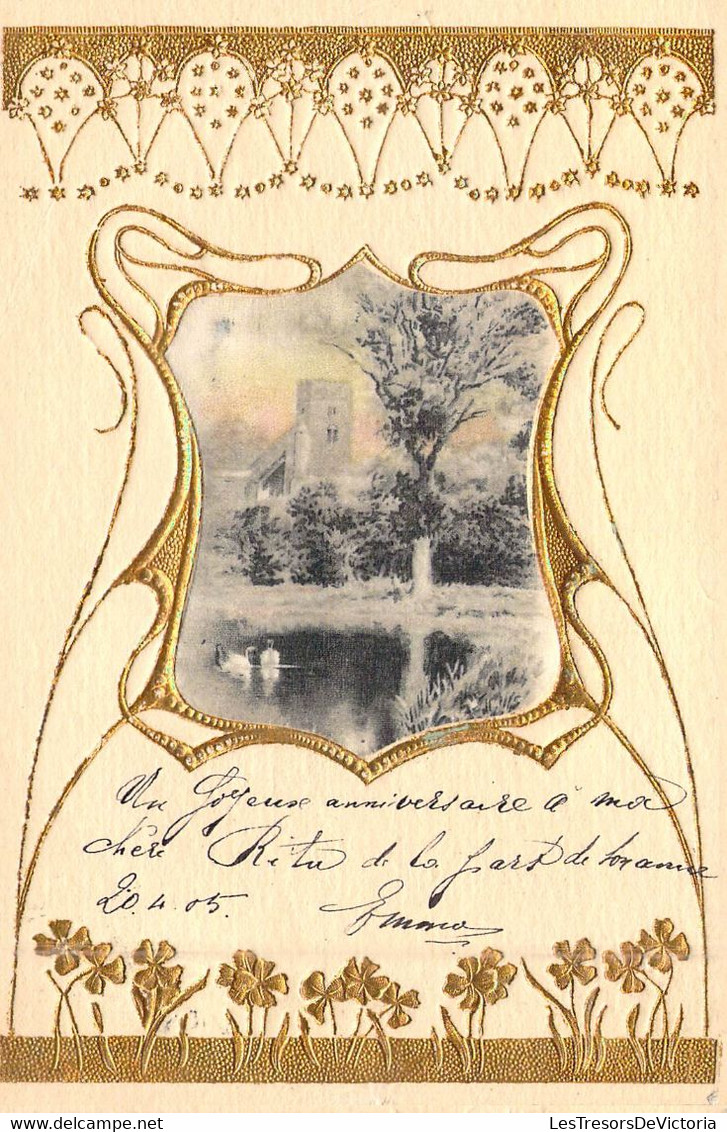 Un Joyeuse anniversaire à ma
chère Rita de la part de
20.4.05. Emma
delcampe.net
LesTresorsDeVictoria